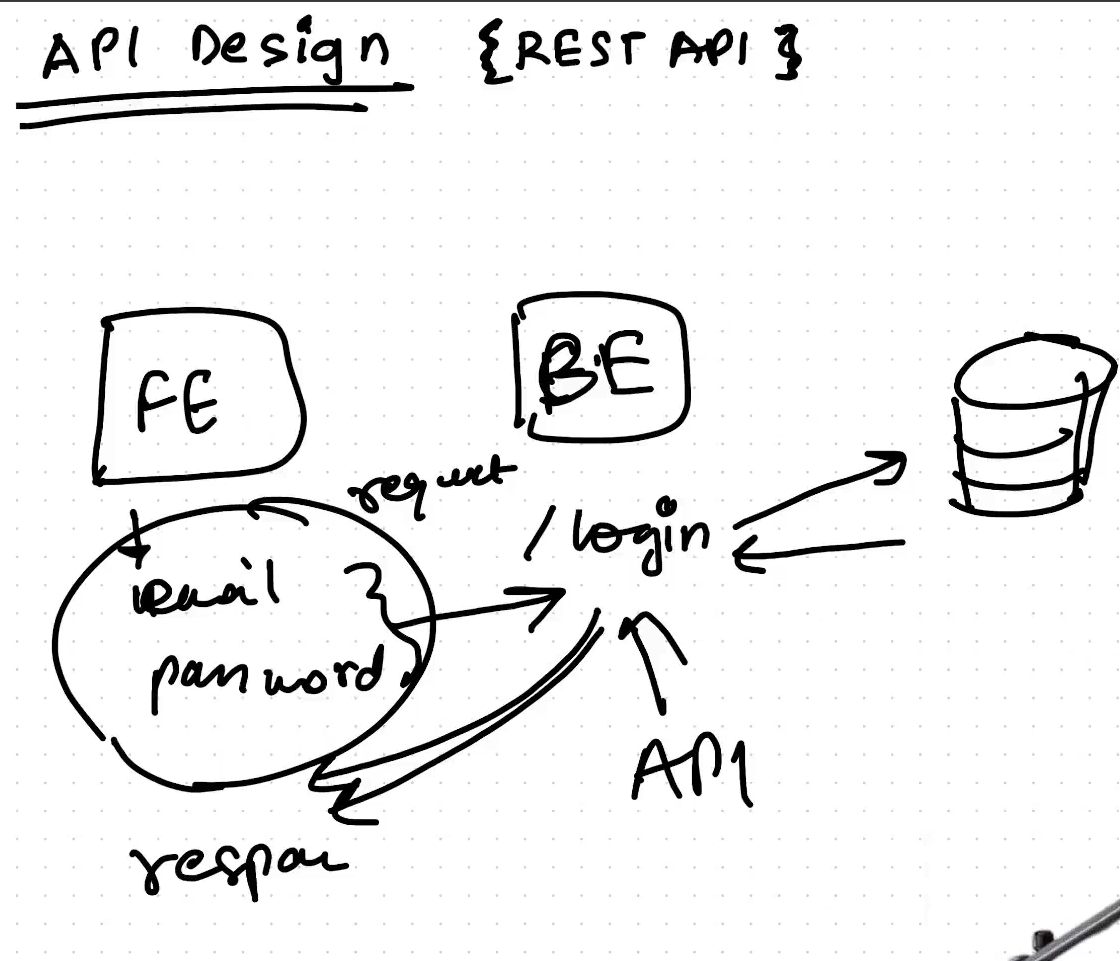 API Design {REST API}
FE
BE
request
/login
email
password
API
respon